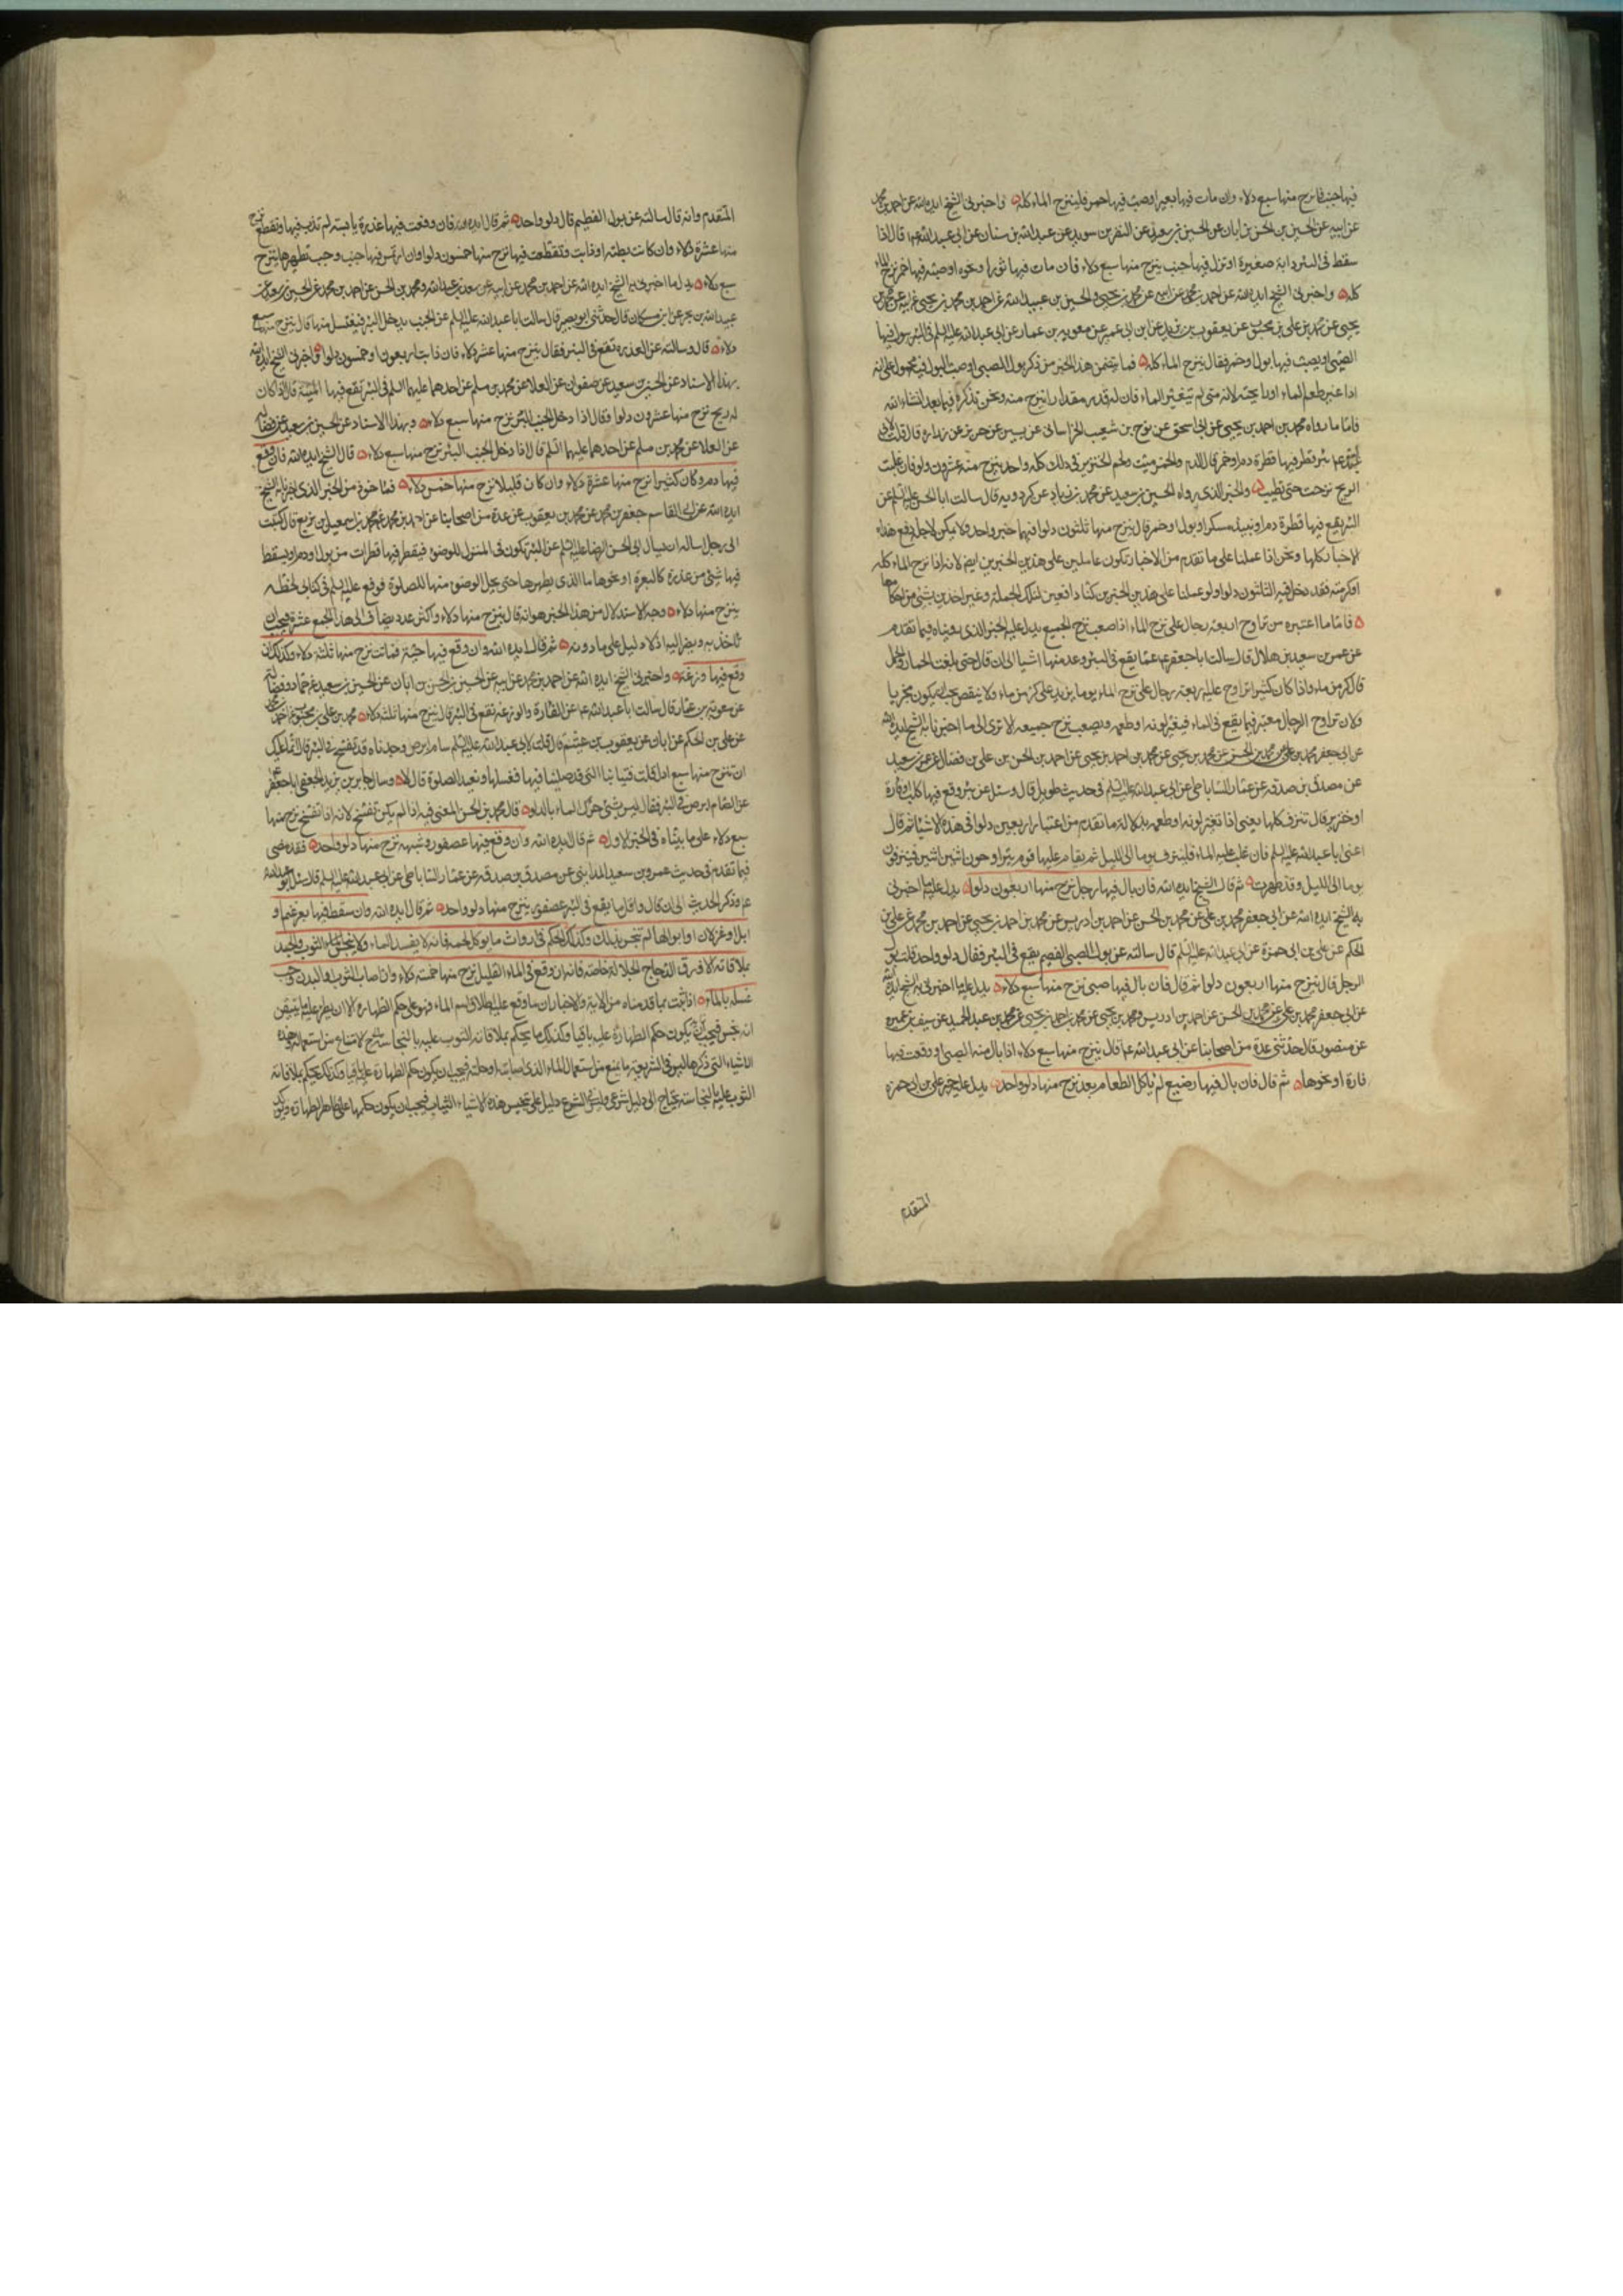 فيها جنب فانزح منها سبع دلاء وان مات فيها بعير او صب فيها خمر فلينزح الماء كله واخبرني الشيخ ايده الله عن احمد بن محمد
عن ابيه عن الحسين بن الحسن بن ابان عن الحسين بن سعيد عن النضر بن سويد عن عبد الله بن سنان عن ابي عبد الله عم قال اذا
سقط في البئر دابة صغيرة او نزل فيها جنب ينزح منها سبع دلاء فان مات فيها ثور او نحوه او صب فيها خمر نزح الماء
كله واخبرني الشيخ ايده الله عن احمد بن محمد عن ابيه عن محمد بن يحيى والحسين بن عبيد الله عن احمد بن محمد بن يحيى عن ابيه عن محمد بن
يحيى عن محمد بن علي بن محبوب عن يعقوب بن يزيد عن ابن ابي عمير عن معوية بن عمار عن ابي عبد الله عليه السلم في البئر يبول فيها
الصبي او يصب فيها بول او خمر فقال ينزح الماء كله فما يتضمن هذا الخبر من ذكر بول الصبي او صب البول فيه محمول على انه
اذا غير طعم الماء او رايحته لانه متى لم يتغير الماء فان له قدر مقدارا ينزح منه ونحن نذكره فيما بعد انشاء الله
فاما ما رواه محمد بن احمد بن يحيى عن ابي اسحق عن نوح بن شعيب الخراساني عن يسين عن حريز عن زرارة قال قلت لابي
عبد الله عم بئر قطر فيها قطرة دم او خمر قال الدم والخمر والميت ولحم الخنزير في ذلك كله واحد ينزح منه عشرون دلوا فان غلبت
الريح نزحت حتى تطيب والخبر الذي رواه الحسين بن سعيد عن محمد بن زياد عن كردويه قال سالت ابا الحسن عليه السلم عن
البئر يقع فيها قطرة دم او نبيذ مسكر او بول او خمر قال ينزح منها ثلثون دلوا فهما خبر واحد ولا يمكن لاجله دفع هذه
الاخبار كلها ونحن اذا عملنا على ما تقدم من الاخبار نكون عاملين على هذين الخبرين ايضا لانه اذا نزح الماء كله
او كر منه فقد دخل فيه الثلثون دلوا ولو عملنا على هذين الخبرين كنا دافعين لتلك الجملة وغير اخذين بشيء من احكامها
فاما ما اعتبره من تراوح اربعة رجال على نزح الماء اذا صعب نزح الجميع يدل عليه الخبر الذي رويناه فيما تقدم
عن عمر بن سعيد بن هلال قال سالت ابا جعفر عم عما يقع في البئر وعد منها اشياء الى ان قال حتى بلغت الحمار والجمل
قال كر من ماء واذا كان كثيرا تراوح عليه اربعة رجال على نزح الماء يوما يزيد على كر من ماء ولا ينقص يجب ان يكون مجزيا
ولان تراوح الرجال معتبر فيما يقع في الماء فيغير لونه او طعمه ويصعب نزح جميعه الا ترى الى ما اخبرنا به الشيخ ايده الله
عن ابي جعفر محمد بن علي عن محمد بن الحسن عن محمد بن يحيى عن محمد بن احمد بن يحيى عن احمد بن الحسن بن علي بن فضال عن عمرو بن سعيد
عن مصدق بن صدقة عن عمار الساباطي عن ابي عبد الله عليه السلم في حديث طويل قال وسئل عن بئر وقع فيها كلب او فارة
او خنزير قال تنزف كلها يعني اذا تغير لونه او طعمه بدلالة ما تقدم من اعتبار اربعين دلوا في هذه الاشياء ثم قال
اعني ابا عبد الله عليه السلم فان غلب عليه الماء فلينزف يوما الى الليل ثم يقام عليها قوم يتراوحون اثنين اثنين فينزفون
يوما الى الليل وقد طهرت ثم قال الشيخ ايده الله فان بال فيها رجل نزح منها اربعون دلوا يدل عليه ما اخبرني
به الشيخ ايده الله عن ابي جعفر محمد بن علي عن محمد بن الحسن عن احمد بن ادريس عن محمد بن احمد بن يحيى عن احمد بن محمد عن علي بن
الحكم عن علي بن ابي حمزة عن ابي عبد الله عليه السلم قال سالته عن بول الصبي الفطيم يقع في البئر فقال دلو واحد قلت بول
الرجل قال ينزح منها اربعون دلوا ثم قال فان بال فيها صبي نزح منها سبع دلاء يدل عليه ما اخبرني به الشيخ ايده الله
عن ابي جعفر محمد بن علي عن محمد بن الحسن عن احمد بن ادريس ومحمد بن يحيى عن محمد بن احمد بن يحيى عن محمد بن عبد الحميد عن سيف بن عميرة
عن منصور قال حدثني عدة من اصحابنا عن ابي عبد الله عم قال ينزح منها سبع دلاء اذا بال منه الصبي او وقعت فيها
فارة او نحوها ثم قال فان بال فيها رضيع لم ياكل الطعام بعد نزح منها دلو واحد يدل عليه خبر علي بن ابي حمزة
المتقدم
المتقدم وانه قال سالته عن بول الفطيم قال دلو واحد ثم قال ايده الله فان وقعت فيها عذرة يابسة لم تذب فيها وتقطع نزح
منها عشرة دلاء وان كانت رطبة او ذابت وتقطعت فيها نزح منها خمسون دلوا وان ارتمس فيها جنب وجب تطهيرها بنزح
سبع دلاء يدل ما اخبرني به الشيخ ايده الله عن احمد بن محمد عن ابيه عن سعد بن عبد الله ومحمد بن الحسن عن احمد بن محمد عن الحسين بن سعيد عن
عبد الله بن بحر عن ابن مسكان قال حدثني ابو بصير قال سالت ابا عبد الله عليه السلم عن الجنب يدخل البئر فيغتسل منها قال ينزح منها سبع
دلاء قال وسالته عن العذرة تقع في البئر فقال ينزح منها عشر دلاء فان ذابت اربعون او خمسون دلوا واخبرني الشيخ ايده الله
بهذا الاسناد عن الحسين بن سعيد عن صفوان عن العلا عن محمد بن مسلم عن احدهما عليهما السلم في البئر تقع فيها الميتة قال اذا كان
له ريح نزح منها عشرون دلوا وقال اذا دخل الجنب البئر نزح منها سبع دلاء وبهذا الاسناد عن الحسين بن سعيد عن فضالة
عن العلا عن محمد بن مسلم عن احدهما عليهما السلم قال اذا دخل الجنب البئر نزح منها سبع دلاء قال الشيخ ايده الله فان وقع
فيها دم وكان كثيرا نزح منها عشرة دلاء وان كان قليلا نزح منها خمس دلاء فماخوذ من الخبر الذي اخبرنا به الشيخ
ايده الله عن ابي القاسم جعفر بن محمد عن محمد بن يعقوب عن عدة من اصحابنا عن احمد بن محمد عن محمد بن اسمعيل بن بزيع قال كتبت
الى رجل اساله ان يسال ابي الحسن الرضا عليه السلم عن البئر تكون في المنزل للوضوء فيقطر فيها قطرات من بول او دم او يسقط
فيها شيء من عذرة كالبعرة او نحوها ما الذي يطهرها حتى يحل الوضوء منها للصلوة فوقع عليه السلم في كتابي بخطه
ينزح منها دلاء وجه الاستدلال من هذا الخبر هو انه قال ينزح منها دلاء واكثر عدد يضاف الى هذا الجمع عشرة فيجب ان
ناخذ به ونصير اليه اذ لا دليل على ما دونه ثم قال ايده الله وان وقع فيها حية فماتت نزح منها ثلثة دلاء وكذلك ان
وقع فيها وزغة واخبرني الشيخ ايده الله عن احمد بن محمد عن ابيه عن الحسين بن الحسن بن ابان عن الحسين بن سعيد عن حماد وفضالة
عن معوية بن عمار قال سالت ابا عبد الله عم عن الفارة والوزغة تقع في البئر قال ينزح منها ثلثة دلاء محمد بن علي بن محبوب عن احمد
عن علي بن الحكم عن ابان عن يعقوب بن عيثم قال قلت لابي عبد الله عليه السلم سام ابرص وجدناه قد تفسخ في البئر قال انما عليك
ان تنزح منها سبع ادل قلت فثيابنا التي قد صلينا فيها نغسلها ونعيد الصلوة قال لا وسال جابر بن يزيد الجعفي ابا جعفر عم
عن السام ابرص في البئر فقال ليس بشيء حرك الماء بالدلو قال محمد بن الحسن المعني فيه اذا لم يكن تفسخ لانه اذا تفسخ نزح منها
سبع دلاء على ما بيناه في الخبر الاول ثم قال ايده الله وان وقع فيها عصفور وشبهه نزح منها دلو واحد فقد مضى
فيما تقدم في حديث عمرو بن سعيد المدايني عن مصدق بن صدقة عن عمار الساباطي عن ابي عبد الله عليه السلم قال سئل ابو عبد الله
عم وذكر الحديث الى ان قال واقل ما يقع في البئر عصفور ينزح منها دلو واحد ثم قال ايده الله وان سقط فيها بعر غنم او
ابل او غزلان او ابوالها لم تنجس بذلك وكذلك الحكم في ارواث ما يوكل لحمه فانه لا يفسد الماء ولا ينجس الثوب والجسد
بملاقاته الا ذرق الدجاج الجلالة خاصة فانه ان وقع في الماء القليل نزح منها خمسة دلاء وان اصاب الثوب والبدن وجب
غسله بالماء اذا ثبت بما قدمناه من الاية والاخبار ان ما وقع عليه اطلاق اسم الماء فهو على حكم الطهارة الا ان يطرء عليه ما يتيقن
انه نجس فيجب ان يكون حكم الطهارة عليه باقيا وكذلك ما يحكم بملاقاته الثوب عليه بالنجاسة الامتناع من استعماله هذه
الاشياء التي ذكرها ليس في الشريعة ما يمنع من استعمال الماء الذي اصابته او حلته فيجب ان يكون حكم الطهارة عليه باقيا وكذلك يحكم بملاقاته
الثوب عليه بالنجاسة يحتاج الى دليل شرعي وليس في الشرع دليل على تنجيس هذه الاشياء الثياب فيجب ان يكون حكمها على ظاهر الطهارة ويؤكد